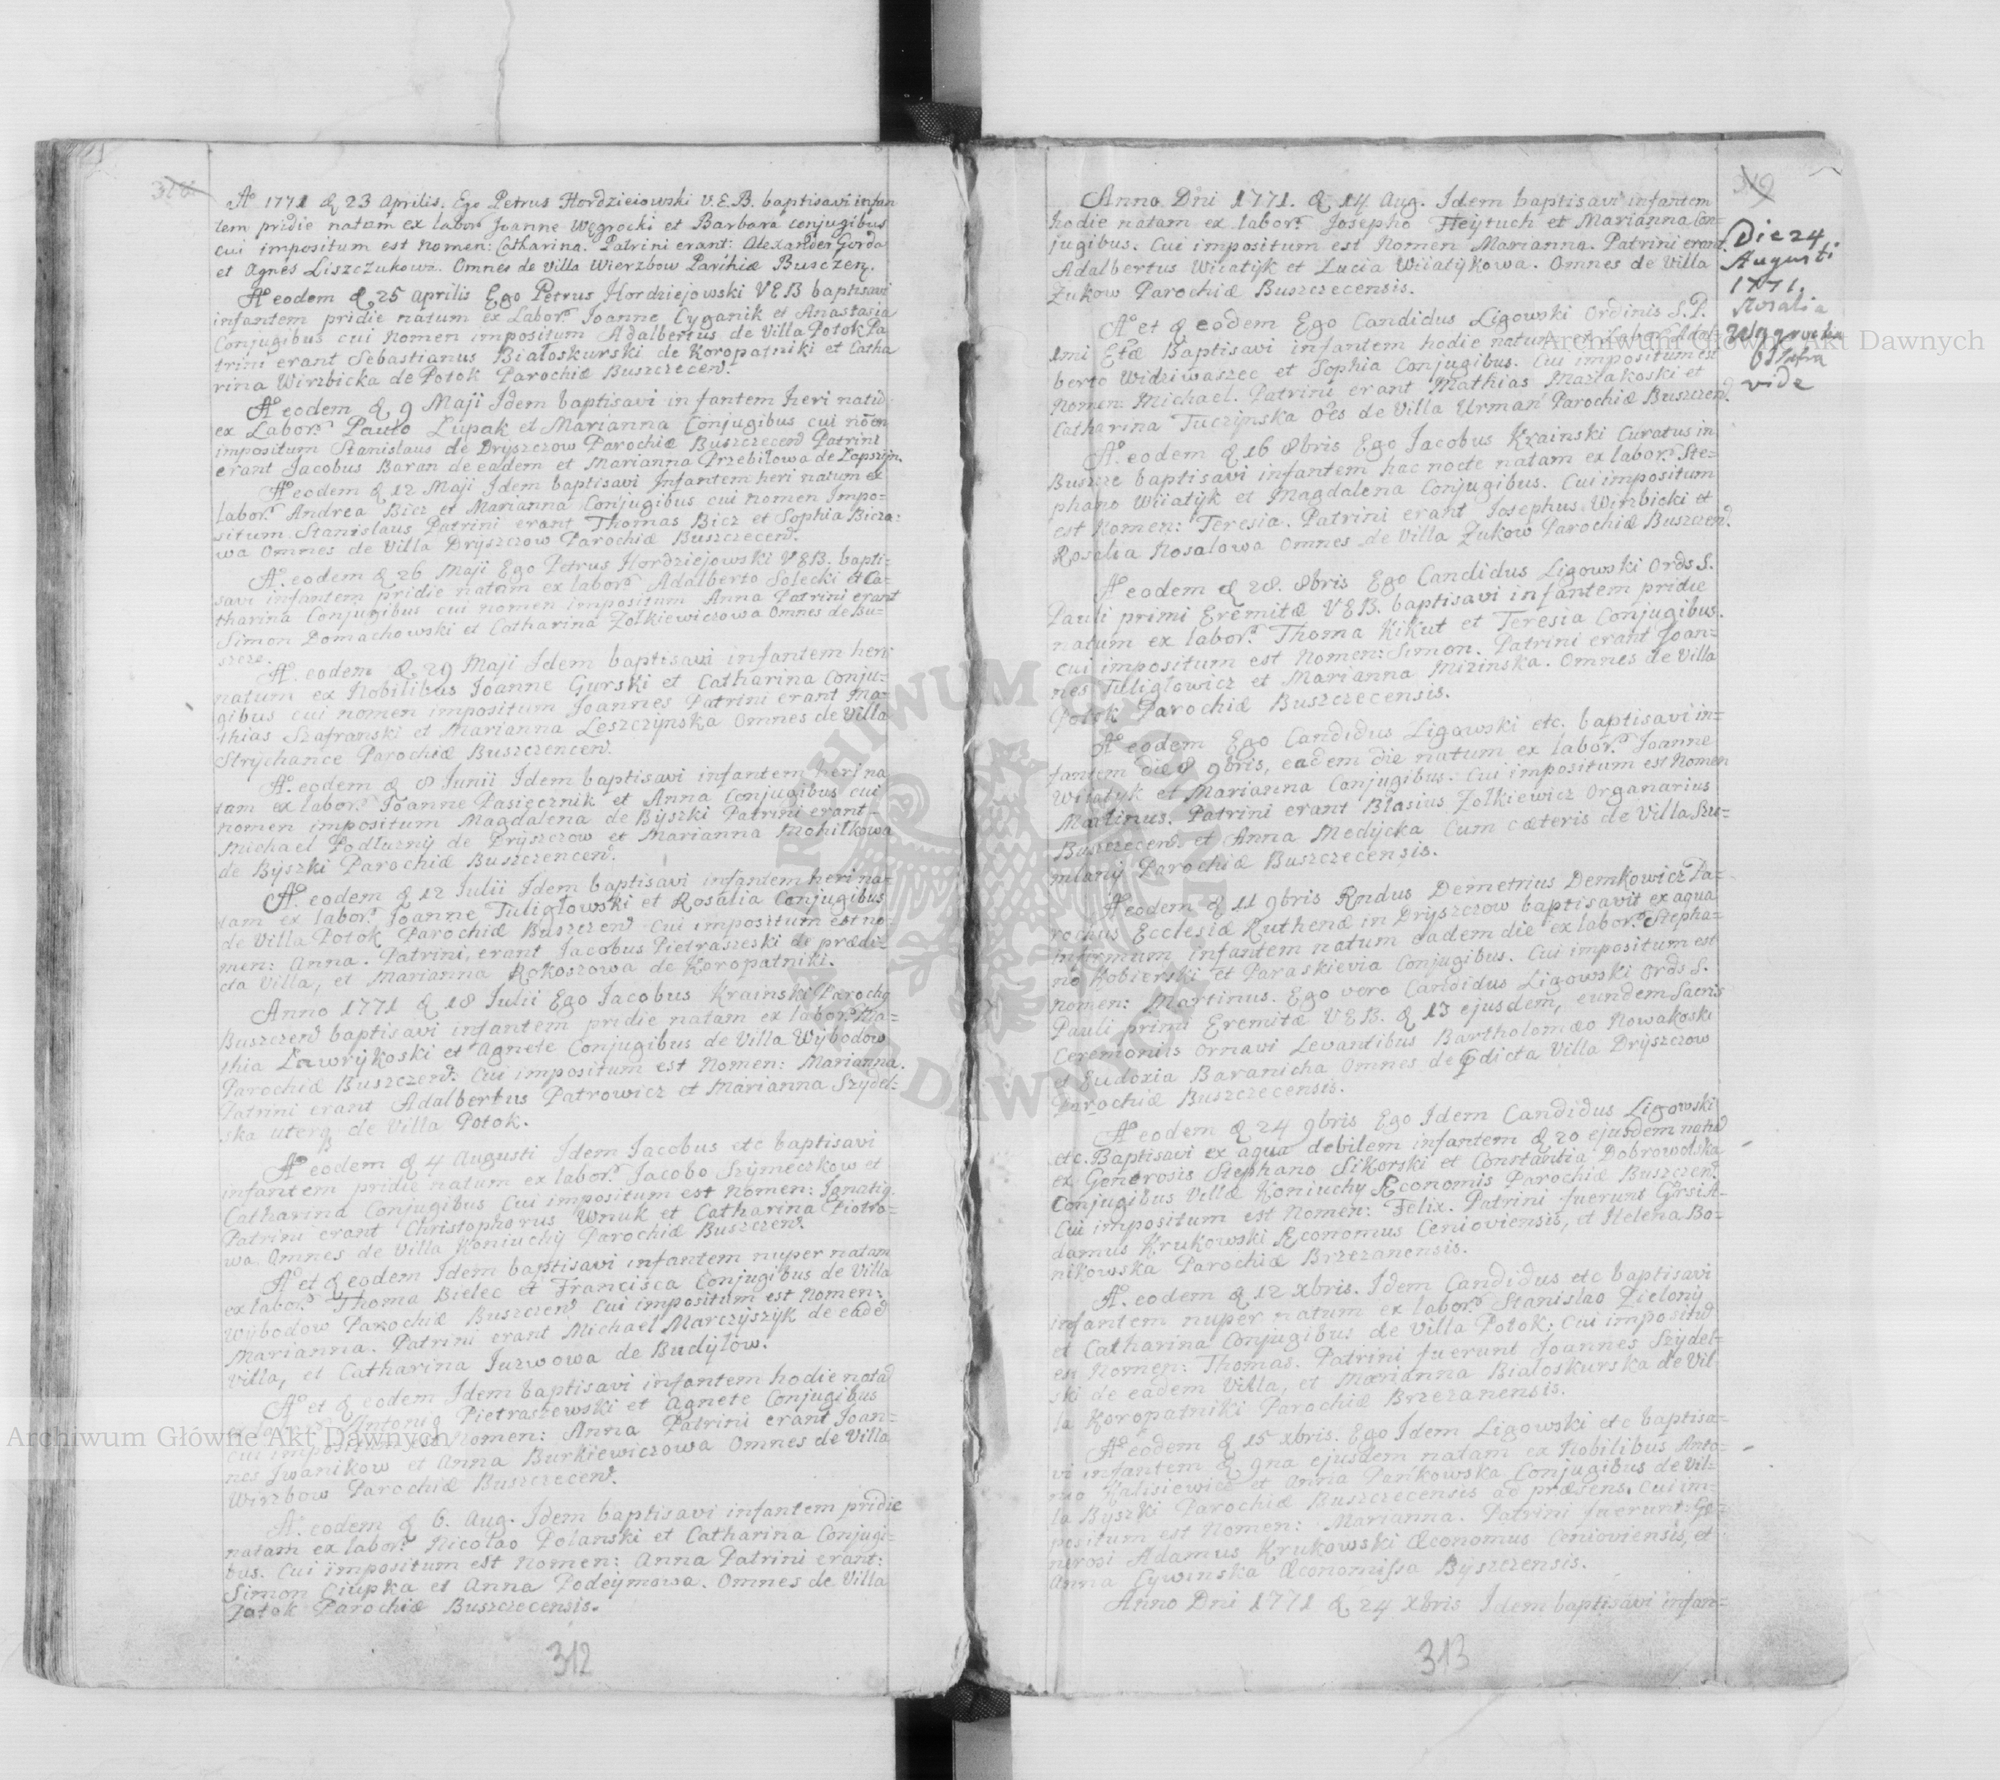 Aº 1771 & 23 Aprilis. Ego Petrus Hordzieiowski V.E.B. baptisavi infan
tem pridie natam ex labor. Joanne Węgrocki et Barbara conjugibus
cui impositum est nomen: Catharina. Patrini erant: Alexander Gorda
et Agnes Liszczukowa. Omnes de Villa Wierzbow Parihiæ Busczen.
Aº eodem & 25 aprilis Ego Petrus Hordziejowski VEB baptisavi
infantem pridie natum ex Labor. Joanne Cyganik et Anastasia
Conjugibus cui Nomen impositum Adalbertus de Villa Potok Pa
trini erant Sebastianus Białoskurski de Koropatniki et Catha
rina Wirzbicka de Potok Parochiæ Buszczecen.
Aº eodem & 9 Maji Idem baptisavi infantem heri natū
ex Labor. Paulo Lupak et Marianna Conjugibus cui noen
impositum Stanislaus de Dryszczow Parochiæ Buszczecen Patrini
erant Jacobus Baran de eadem et Marianna Przebiłowa de Lopszyn.
Aº eodem & 12 Maji Idem baptisavi Infantem heri natum ex
labor. Andrea Bicz et Marianna Conjugibus cui nomen Impo=
situm Stanislaus Patrini erant Thomas Bicz et Sophia Bicza=
wa Omnes de Villa Dryszczow Parochiæ Buszczecen.
Aº. eodem & 26 Maji Ego Petrus Hordziejowski VEB. bapti=
savi infantem pridie natam ex labor. Adalberto Solecki et Ca=
tharina Conjugibus cui nomen impositum Anna Patrini erant
Simon Domachowski et Catharina Zolkiewiczowa Omnes de Bu=
szcze.
Aº. eodem & 29 Maji Idem baptisavi infantem heri
natum ex Nobilibus Joanne Gurski et Catharina Conju=
gibus cui nomen impositum Joannes Patrini erant Ma=
thias Szafranski et Marianna Leszczynska Omnes de Villa
Strychance Parochiæ Buszczencen.
Aº. eodem & 8 Junii Idem baptisavi infantem heri na
tam ex labor. Joanne Pasiecznik et Anna Conjugibus cui
nomen impositum Magdalena de Byszki Patrini erant
Michael Podluzny de Dryszczow et Marianna Mohilkowa
de Byszki Parochiæ Buszczencen.
Aº. eodem & 12 Julii Idem baptisavi infantem heri na=
tam ex labor. Joanne Tuligłowski et Rosalia Conjugibus
de Villa Potok Parochiæ Buszczen cui impositum est no=
men: Anna. Patrini, erant Jacobus Pietraszeski de prædi=
cta Villa, et Marianna Rokoszowa de Koropatniki.
Anno 1771 & 18 Julii Ego Jacobus Krainski Parochq
Buszczen baptisavi infantem pridie natam ex labor. Ma=
thia Lawrykoski et Agnete Conjugibus de Villa Wybodow
Parochiæ Buszczen. Cui impositum est Nomen: Marianna.
Patrini erant Adalbertus Patrowicz et Marianna Szydel=
ska uterq de Villa Potok.
Aº eodem & 4 Augusti Idem Jacobus etc baptisavi
infantem pridie natum ex labor. Jacobo Szymeczkow et
Catharina Conjugibus Cui impositum est Nomen: Ignatiq
Patrini erant Christophorus Wnuk et Catharina Piotro=
wa Omnes de Villa Koniuchy Parochiæ Buszczen.
Aº et & eodem Idem baptisavi infantem nuper natam
ex labor. Thoma Bielec et Francisca Conjugibus de Villa
Wybodow Parochiæ Buszczen Cui impositum est Nomen:
Marianna. Patrini erant Michael Marczyszyk de eadē
Villa, et Catharina Jurwowa de Budyłow.
Aº et & eodem Idem baptisavi infantem hodie natā
Antoniq Pietraszewski et Agnete Conjugibus
Cui impositum est Nomen: Anna Patrini erant Joan=
nes Iwanikow et Anna Burkiewiczowa Omnes de Villa
Wirzbow Parochiæ Buszczecen.
Aº. eodem & 6. Aug. Idem baptisavi infantem pridie
natam ex labor. Nicolao Polanski et Catharina Conjugi=
bus. Cui impositum est Nomen: Anna Patrini erant:
Simon Ciupka et Anna Podeymowa. Omnes de Villa
Potok Parochiæ Buszczecensis.
312
319
Anno Dni 1771. & 14 Aug. Idem baptisavi infantem
hodie natam ex labor. Josepho Heytuch et Marianna Con=
jugibus. Cui impositum est Nomen Marianna. Patrini erant
Adalbertus Wiiatyk et Lucia Wiiatykowa. Omnes de Villa
Zukow Parochiæ Buszczecensis.
Die 24
Augusti
1771.
Rosalia
Węgrocka
infra
vide
Aº et & eodem Ego Candidus Ligowski Ordinis S.P.
imi Etæ Baptisavi infantem hodie natum ex Labor. Adal
berto Widziwaszec et Sophia Conjugibus. Cui impositum est
Nomen Michael. Patrini erant Mathias Maziakoski et
Catharina Tuczynska Oes de Villa Urman Parochiæ Buszczen.
Aº. eodem & 16 8bris Ego Jacobus Krainski Curatus in
Buszcze baptisavi infantem hac nocte natam ex labor. Ste=
phano Wiiatyk et Magdalena Conjugibus. Cui impositum
est Nomen: Teresia. Patrini erant Josephus Wirzbicki et
Rosalia Kosalowa Omnes de Villa Zukow Parochiæ Buszczen.
Aº eodem & 28. 8bris Ego Candidus Ligowski Ords S.
Pauli primi Eremitæ VEB. baptisavi infantem pridie
natum ex labor. Thoma Kikut et Teresia Conjugibus.
cui impositum est Nomen: Simon. Patrini erant Joan=
nes Tuligłowicz et Marianna Mizinska. Omnes de Villa
Potok Parochiæ Buszczecensis.
Aº eodem Ego Candidus Ligowski etc. baptisavi in=
fantem die 8 9bris, eadem die natum ex labor. Joanne
Wiiatyk et Marianna Conjugibus. Cui impositum est Nomen
Martinus. Patrini erant Blasius Zolkiewicz Organarius
Buszczecen. et Anna Medycka Cum cæteris de Villa Szu=
mlany Parochiæ Buszczecensis.
Aº eodem & 11 9bris Rndus Demetrius Demkowicz Pa=
rochus Ecclesiæ Ruthenæ in Dryszczow baptisavit ex aqua
infirmum infantem natum eadem die ex labor. Stepha=
no Kobierski et Paraskievia Conjugibus. Cui impositum est
Nomen: Martinus. Ego vero Candidus Ligowski Ords S.
Pauli primi Eremitæ VEB. & 13 ejusdem, eundem Sacris
Ceremoniis Ornavi Levantibus Bartholomæo Nowakoski
et Eudoxia Baranicha Omnes de Pdicta Villa Dryszczow
Parochiæ Buszczecensis.
Aº eodem & 24 9bris Ego Idem Candidus Ligowski
etc. Baptisavi ex aqua debilem infantem & 20 ejusdem natū
ex Generosis Stephano Sikorski et Constantia Dobrowolska
Conjugibus Villæ Koniuchy Æconomis Parochiæ Buszczen.
Cui impositum est Nomen: Felix. Patrini fuerunt Grsi A=
damus Krukowski Æconomus Cenioviensis, et Helena Bo=
nikowska Parochiæ Brzezanensis.
Aº. eodem & 12 xbris. Idem Candidus etc baptisavi
infantem nuper natum ex labor. Stanislao Zielony
et Catharina Conjugibus de Villa Potok; Cui impositū
est Nomen: Thomas. Patrini fuerunt Joannes Szydel=
ski de eadem Villa, et Marianna Bialoskurska de Vil=
la Koropatniki Parochiæ Brzezanensis.
Aº eodem & 15 xbris. Ego Idem Ligowski etc baptisa=
vi infantem & 9na ejusdem natam ex Nobilibus Anto=
nio Kalisiewicz et Anna Pankowska Conjugibus de Vil=
la Byszki Parochiæ Buszczecensis ad præsens. Cui im=
positum est Nomen: Marianna. Patrini fuerunt: Ge=
nerosi Adamus Krukowski Œconomus Cenioviensis, et
Anna Cywinska Œconomissa Byszczensis.
Anno Dni 1771 & 24 Xbris Idem baptisavi infan=
313
Archiwum Główne Akt Dawnych
Archiwum Główne Akt Dawnych
ARCHIWUM GŁÓWNE AKT DAWNYCH